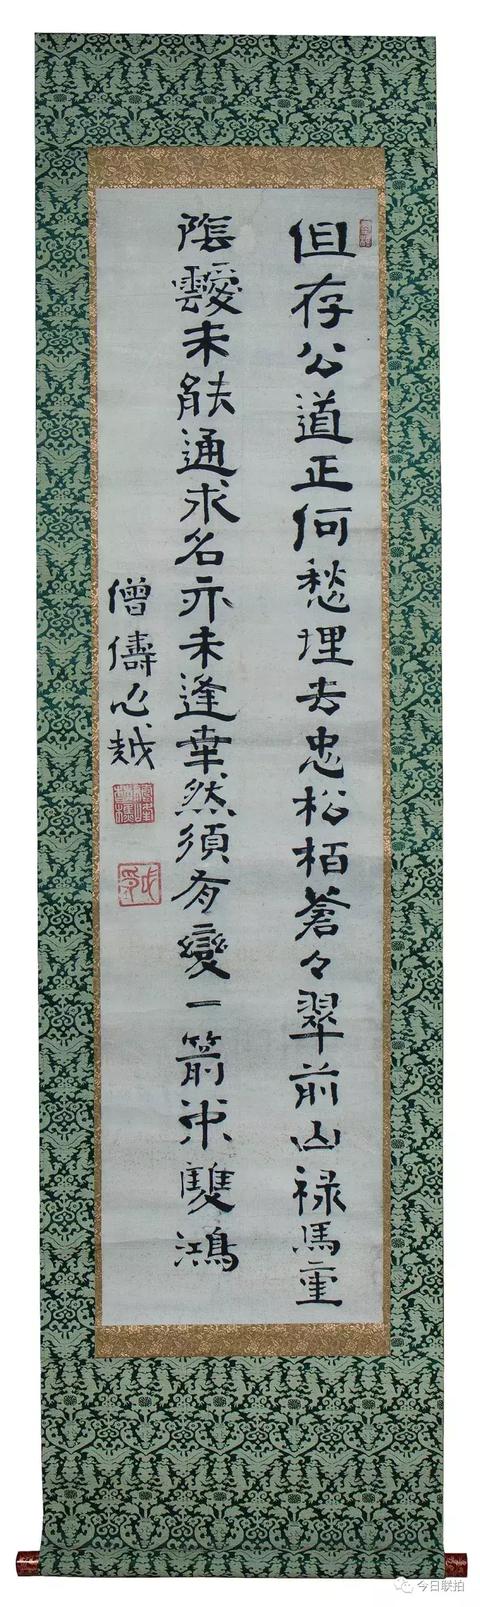 但存公道正何愁理去忠松栢蒼々翠前山禄馬重
陰靉未能通求名亦未逢幸然須有變一箭雙鴻
僧儔心越
今日联拍